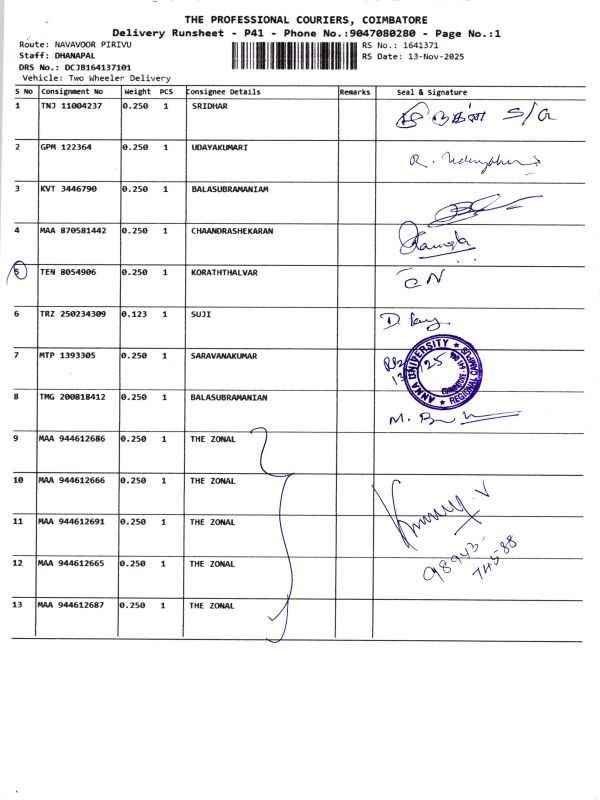 THE PROFESSIONAL COURIERS, COIMBATORE
Delivery Runsheet - P41 - Phone No.:9047080280 - Page No.:1
Route: NAVAVOOR PIRIVU RS No.: 1641371
Staff: DHANAPAL RS Date: 13-Nov-2025
DRS No.: DCJB164137101
Vehicle: Two Wheeler Delivery
S No Consignment No Weight PCS Consignee Details Remarks Seal & Signature
1 TNJ 11004237 0.250 1 SRIDHAR S/O
2 GPM 122364 0.250 1 UDAYAKUMARI R.
3 KVT 3446790 0.250 1 BALASUBRAMANIAM
4 MAA 870581442 0.250 1 CHAANDRASHEKARAN
5 TEN 8054906 0.250 1 KORATHTHALVAR
6 TRZ 250234309 0.123 1 SUJI D
7 MTP 1393305 0.250 1 SARAVANAKUMAR
ANNA UNIVERSITY ★ REGIONAL CAMPUS ★ COIMBATORE
8 TMG 200818412 0.250 1 BALASUBRAMANIAN M.
9 MAA 944612686 0.250 1 THE ZONAL
10 MAA 944612666 0.250 1 THE ZONAL
11 MAA 944612691 0.250 1 THE ZONAL
12 MAA 944612665 0.250 1 THE ZONAL
13 MAA 944612687 0.250 1 THE ZONAL